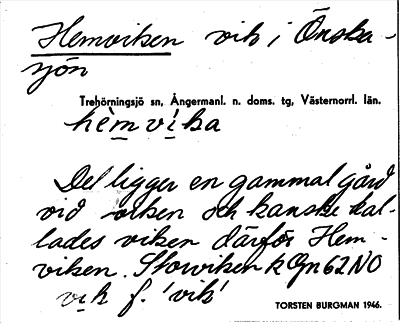 Hemviken vik i Önska-
sjön
Trehörningsjö sn, Ångermanl. n. doms. tg, Västernorrl. län.
hèmvika
Det ligger en gammal gård
vid viken och kanske kal-
lades viken därför Hem-
viken. Storviken k Ögn 62 NO
vik f. 'vik'
TORSTEN BURGMAN 1946.